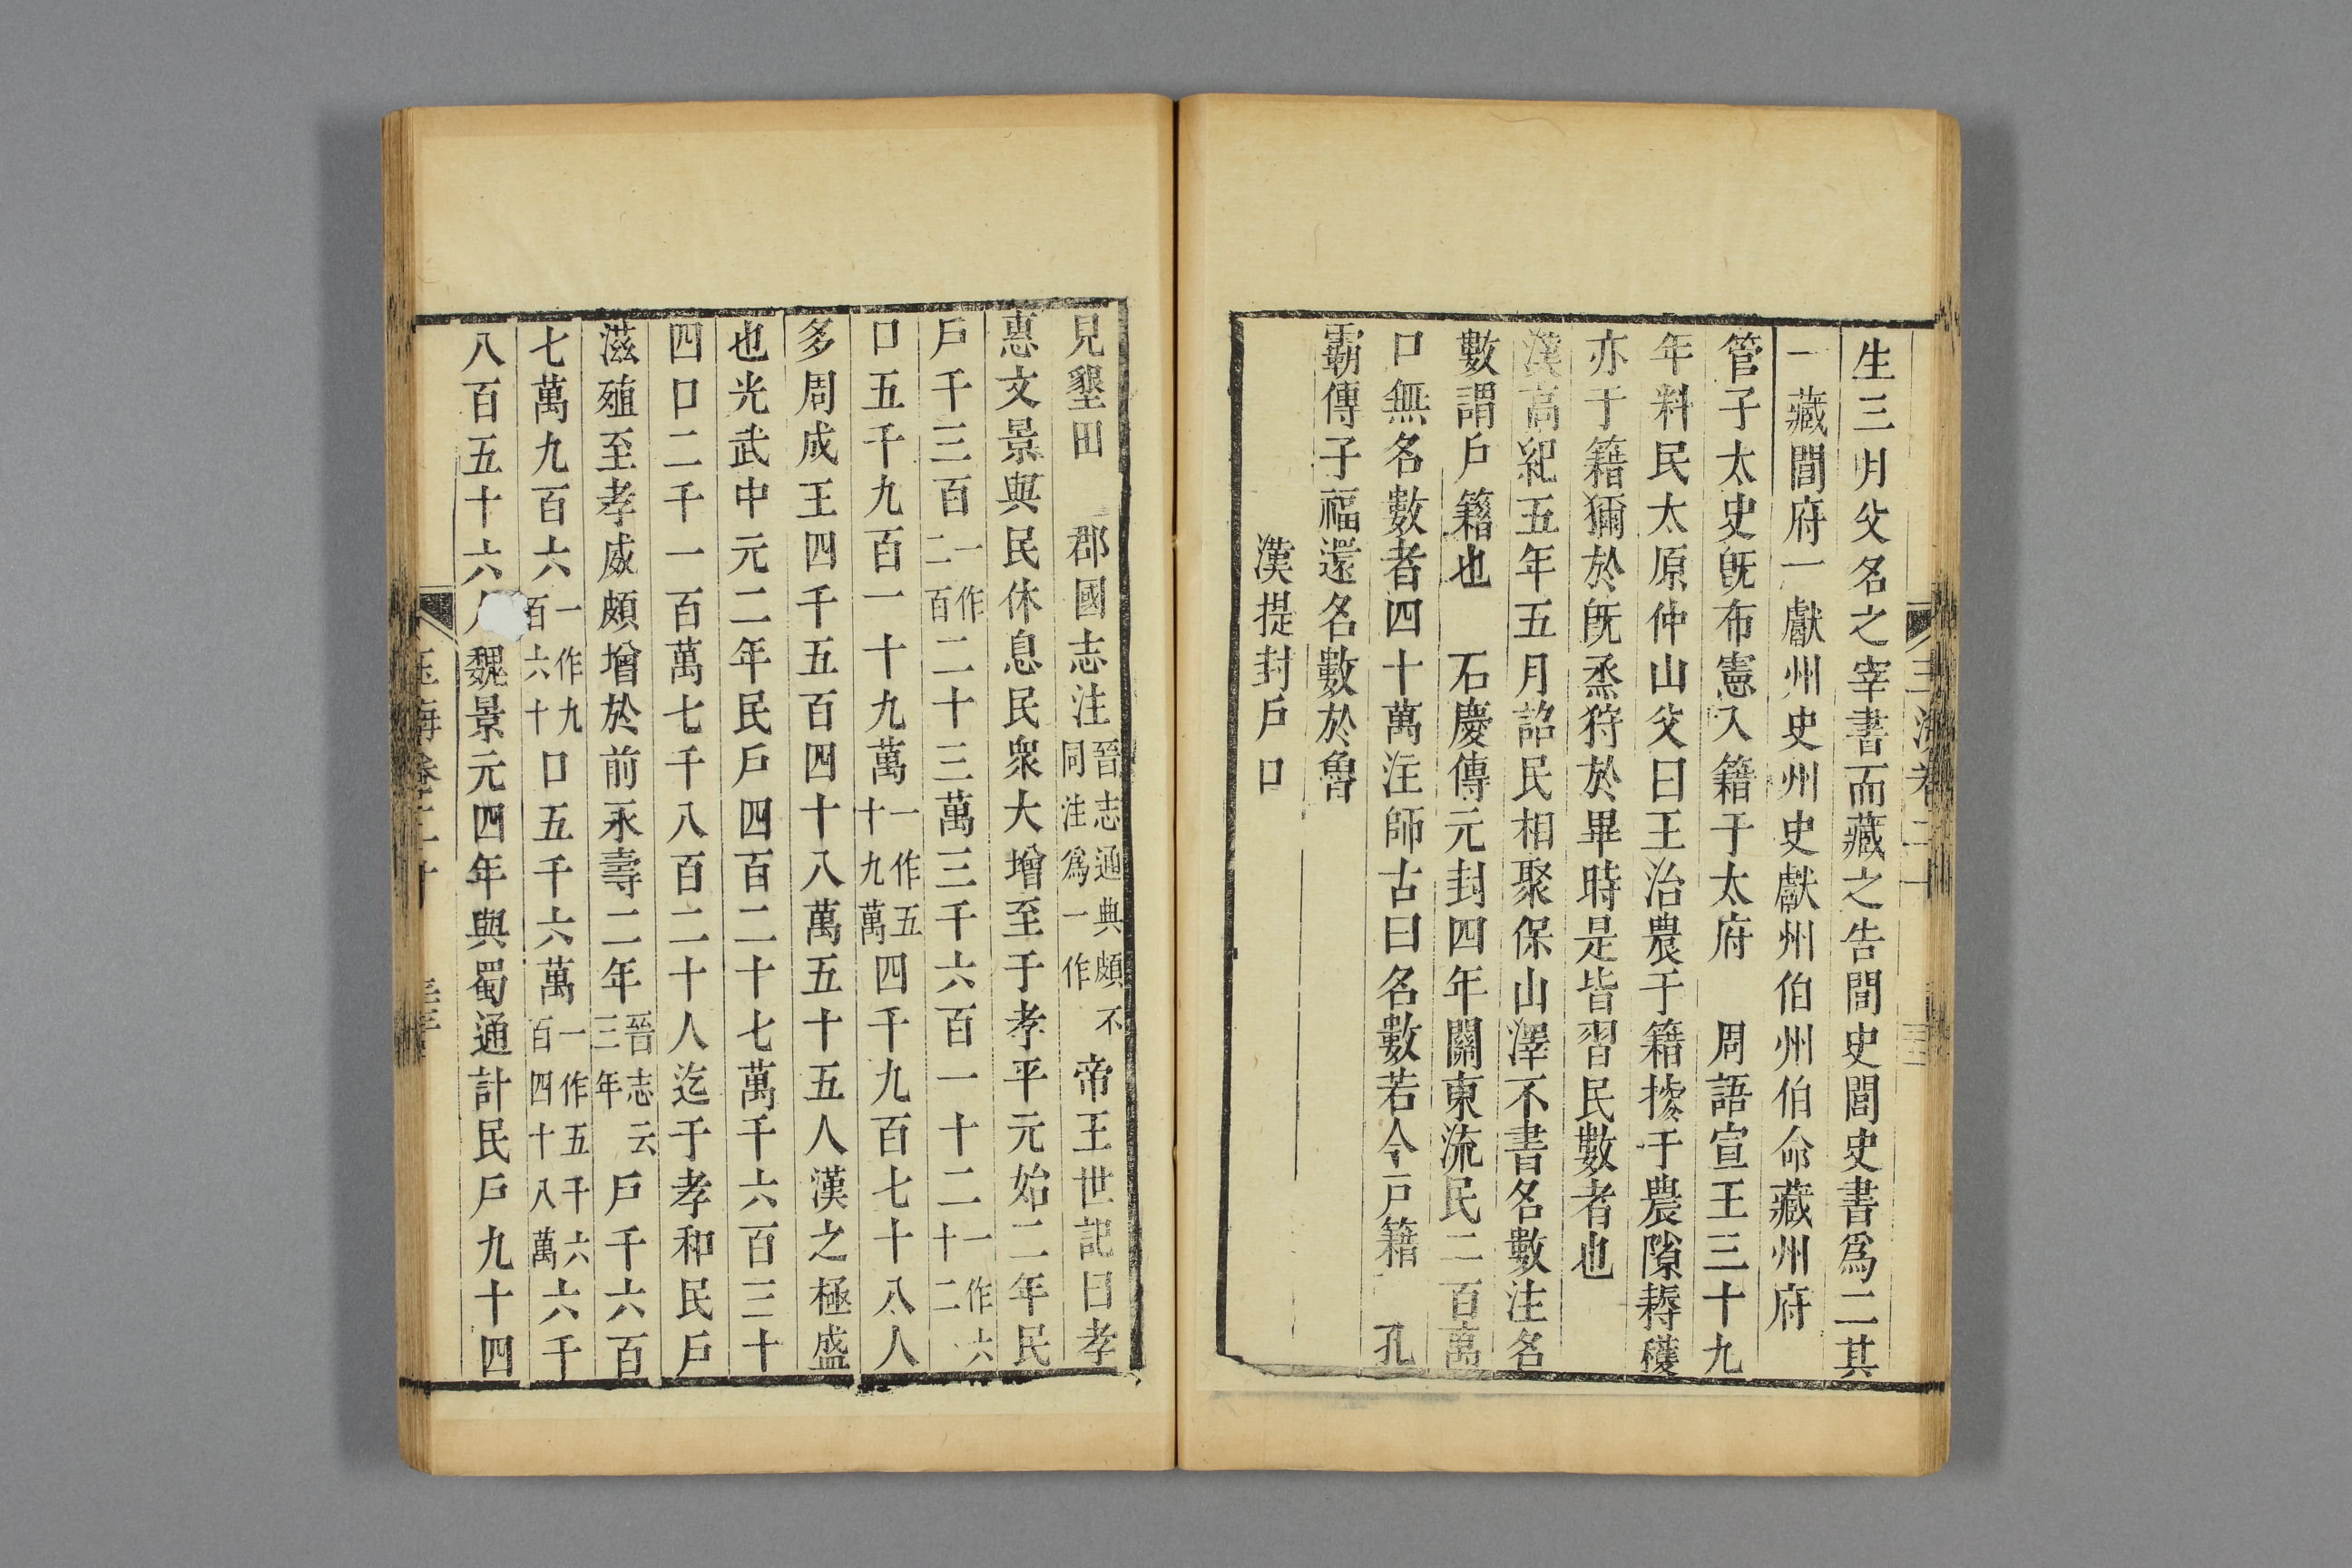 生三月父名之宰書而藏之告閭史閭史書爲二其
一藏閭府一獻州史州史獻州伯州伯命藏州府
管子太史旣布憲入籍于太府　周語宣王三十九
年料民太原仲山父曰王治農于籍搜于農隙耨穫
亦于籍獮於旣烝狩於畢時是皆習民數者也
漢高紀五年五月詔民相聚保山澤不書名數注名
數謂戶籍也　石慶傳元封四年關東流民二百萬
口無名數者四十萬注師古曰名數若今戶籍　孔
霸傳子福還名數於魯
漢提封戶口
見墾田　郡國志注晉志通典頗不同注爲一作帝王世記曰孝
惠文景與民休息民衆大增至于孝平元始二年民
戶千三百一作二百二十三萬三千六百一十二一作六十二
口五千九百一十九萬一作五十九萬四千九百七十八人
多周成王四千五百四十八萬五十五人漢之極盛
也光武中元二年民戶四百二十七萬千六百三十
四口二千一百萬七千八百二十人迄于孝和民戶
滋殖至孝威頗增於前永壽二年晉志云三年戶千六百
七萬九百六一作九百六十口五千六萬一作五千六百四十八萬六千
八百五十六人魏景元四年與蜀通計民戶九十四
玉海卷二十